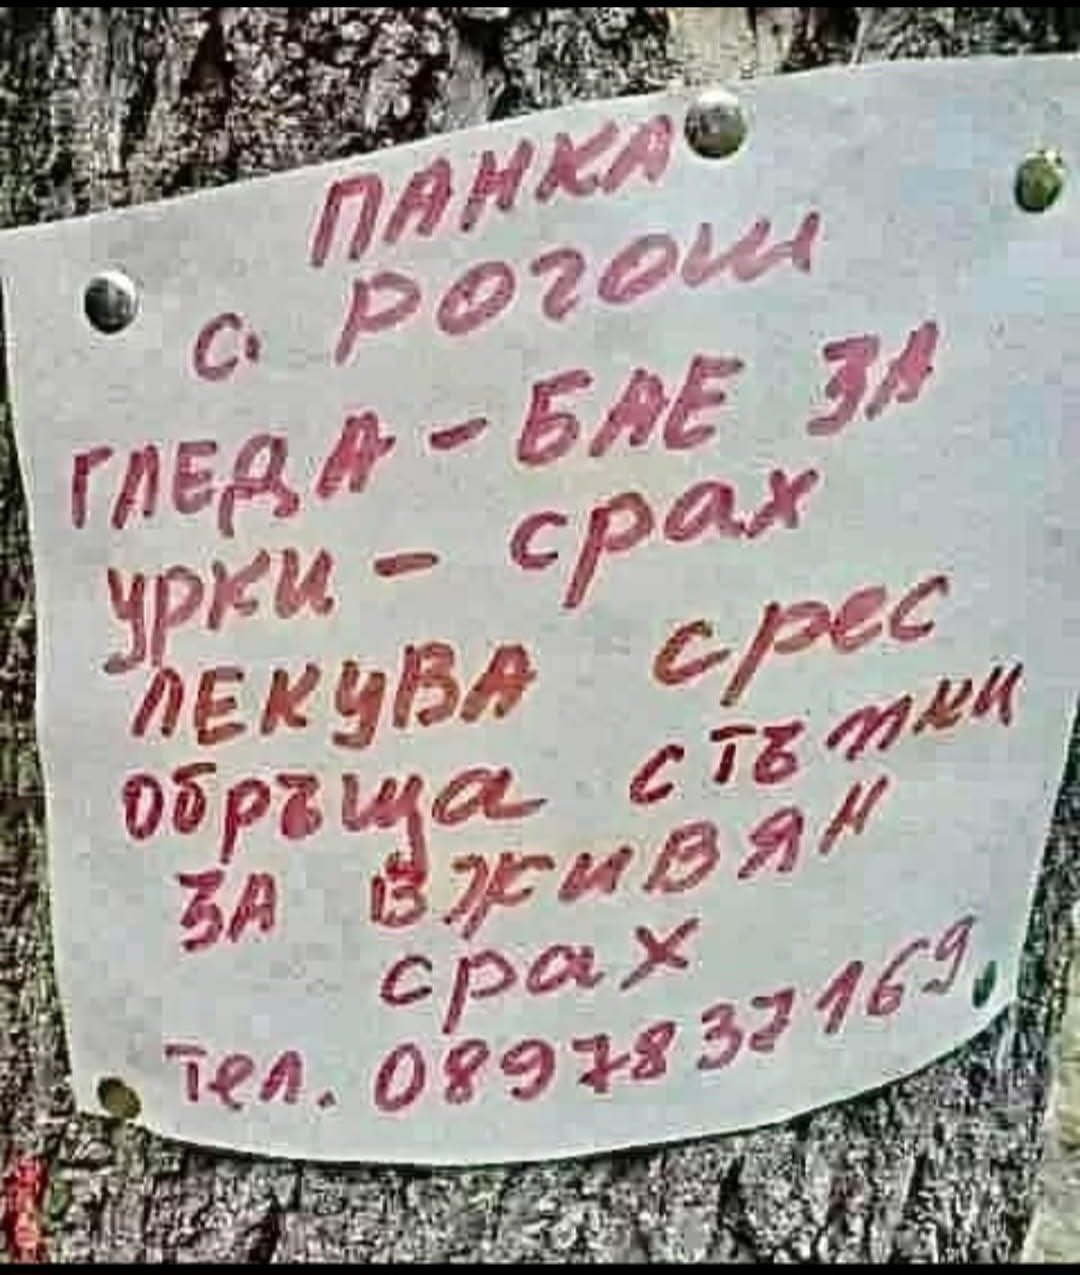 ПАНКА
с. рогош
ГЛЕДА - БАЕ ЗА
УРКИ - срах
ЛЕКУВА срес
обръща стъпки
ЗА ВЖИВЯН
срах
Тел. 0897837169